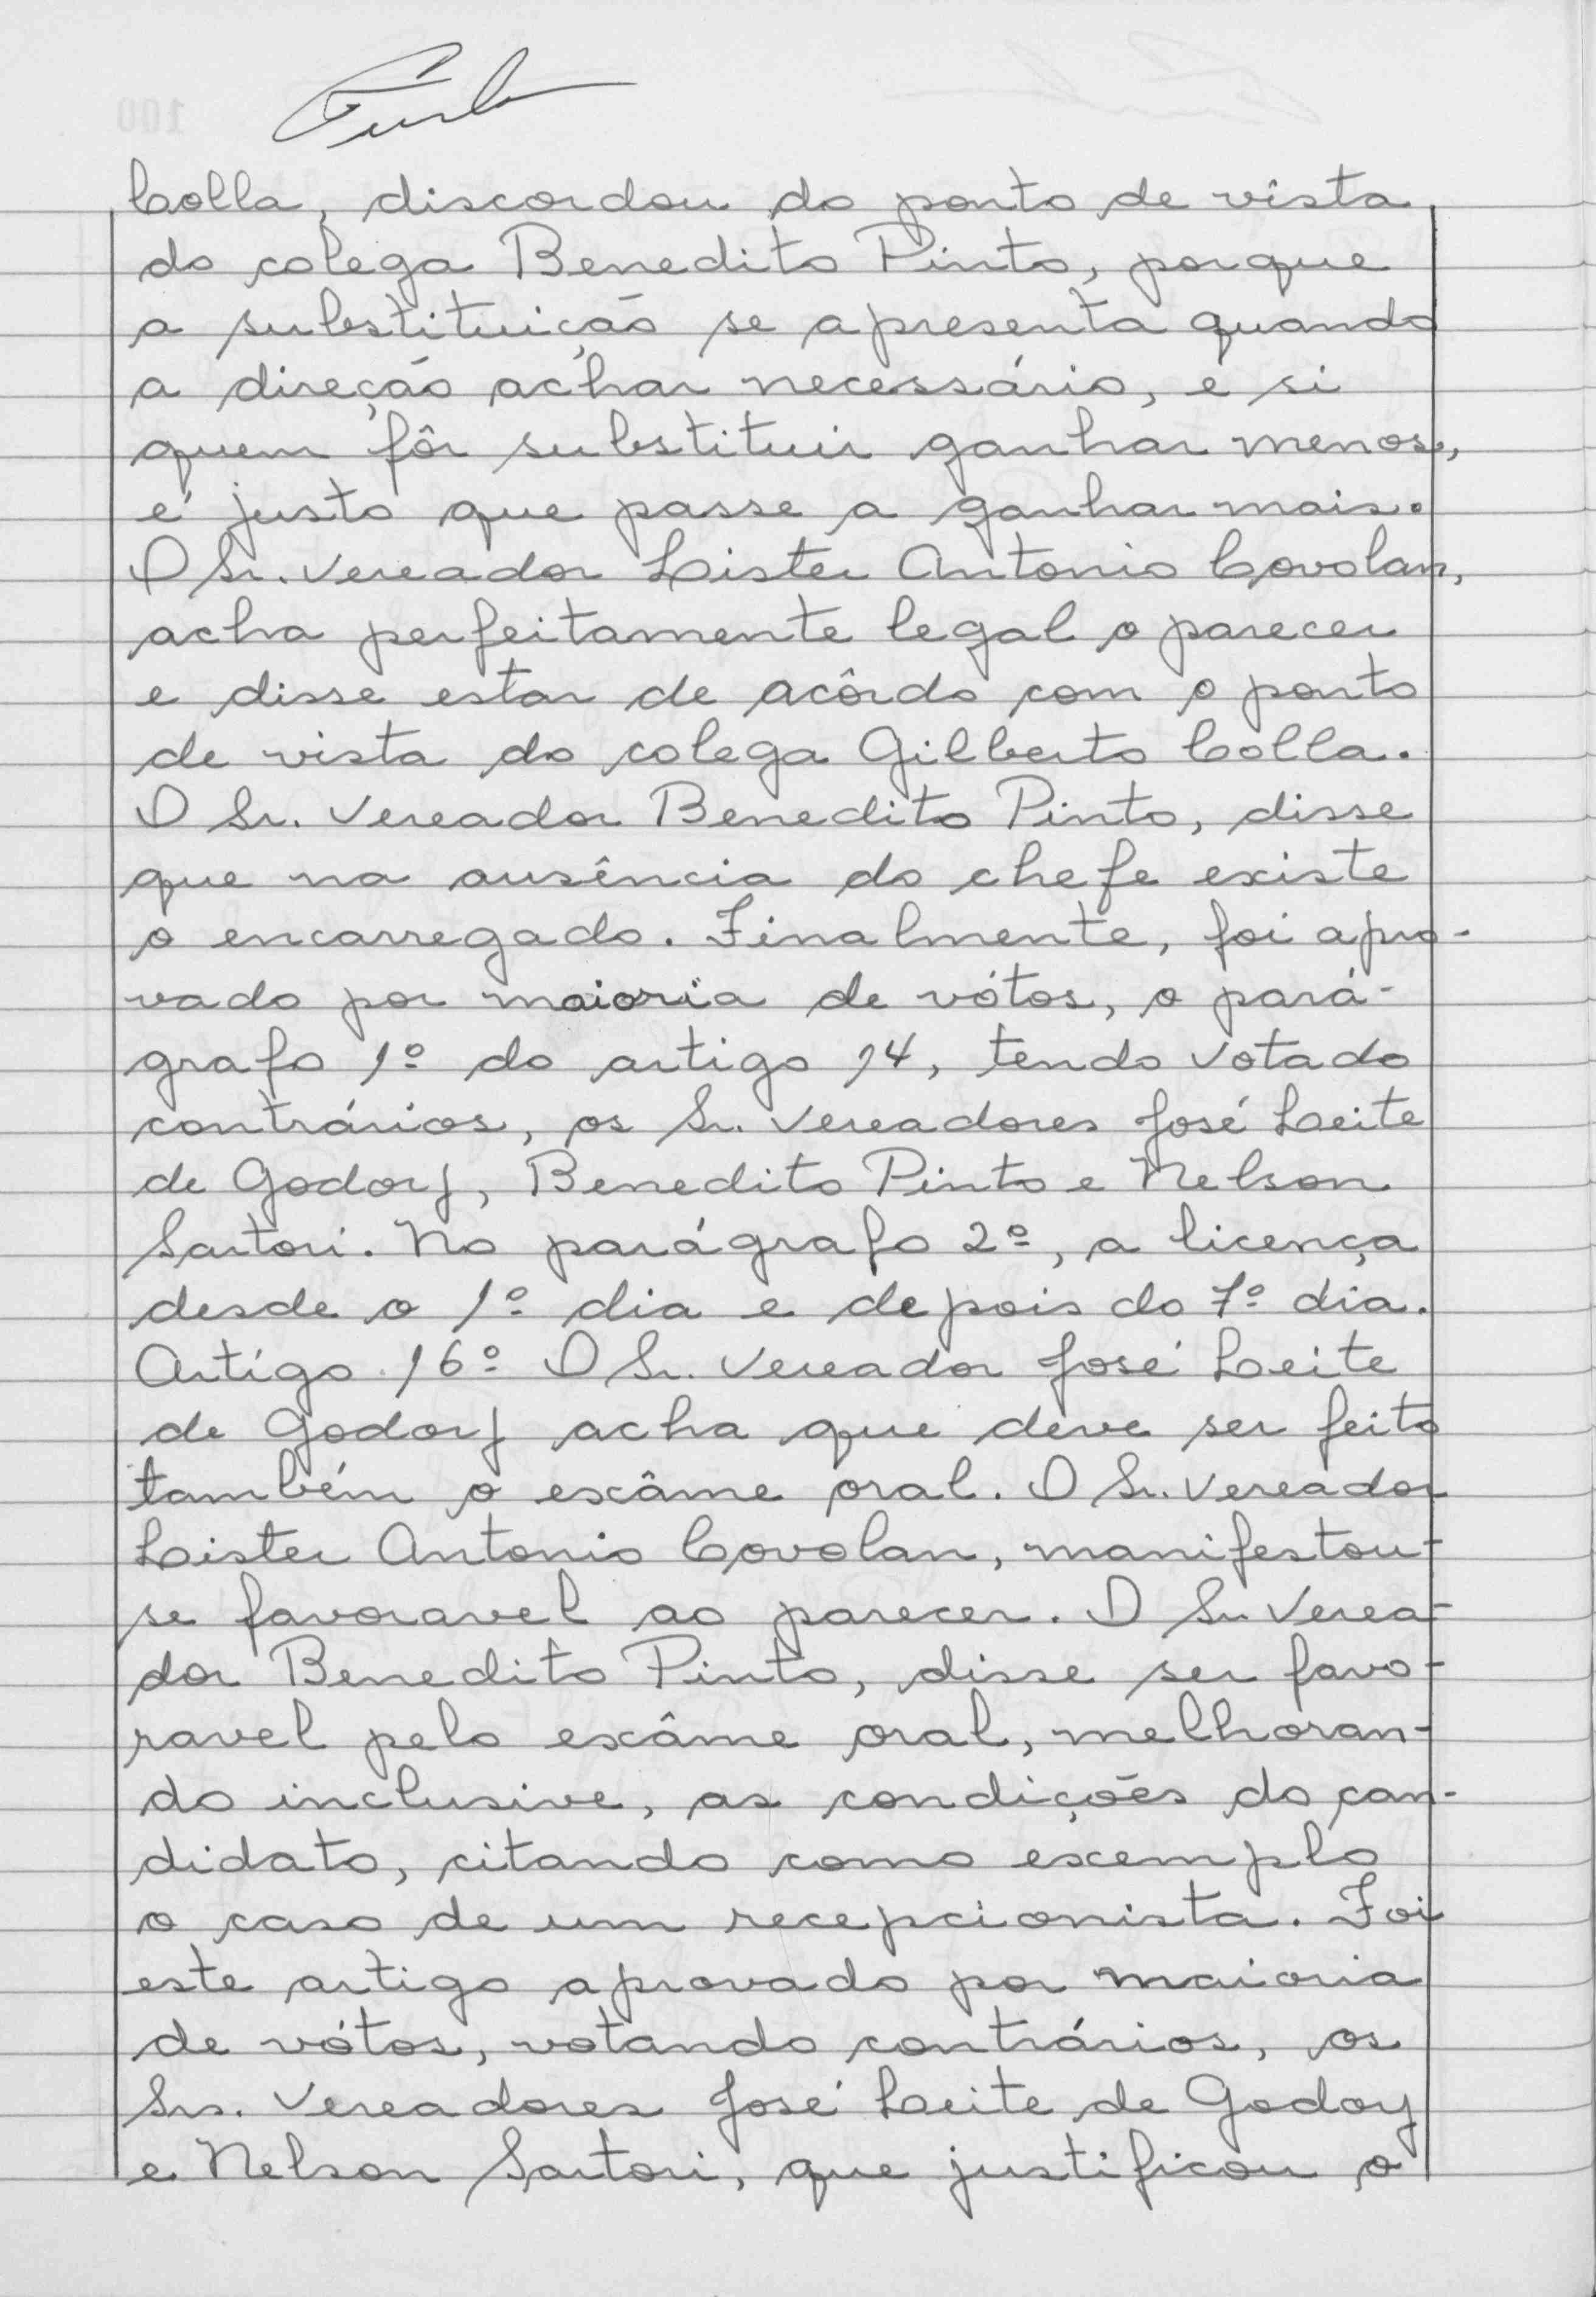 Colla, discordou do ponto de vista
do colega Benedito Pinto, porque
a substituição se apresenta quando
a direção achar necessário, e si
quem fôr substituir ganhar menos,
é justo que passe a ganhar mais.
O Sr. Vereador Lister Antonio Covolan,
acha perfeitamente legal o parecer
e disse estar de acôrdo com o ponto
de vista do colega Gilberto Colla.
O Sr. Vereador Benedito Pinto, disse
que na ausência do chefe existe
o encarregado. Finalmente, foi apro-
vado por maioria de vótos, o pará-
grafo 1º do artigo 14, tendo votado
contrários, os Sr. Vereadores José Leite
de Godoy, Benedito Pinto e Nelson
Sartori. No parágrafo 2º, a licença
desde o 1º dia e depois do 7º dia.
Artigo 16º O Sr. Vereador José Leite
de Godoy acha que deve ser feito
também o exâme oral. O Sr. Vereador
Lister Antonio Covolan, manifestou-
se favoravel ao parecer. O Sr. Verea-
dor Benedito Pinto, disse ser favo-
ravel pelo exâme oral, melhoran-
do inclusive, as condições do can-
didato, citando como exemplo
o caso de um recepcionista. Foi
este artigo aprovado por maioria
de vótos, votando contrários, os
Srs. Vereadores José Leite de Godoy
e Nelson Sartori, que justificou o